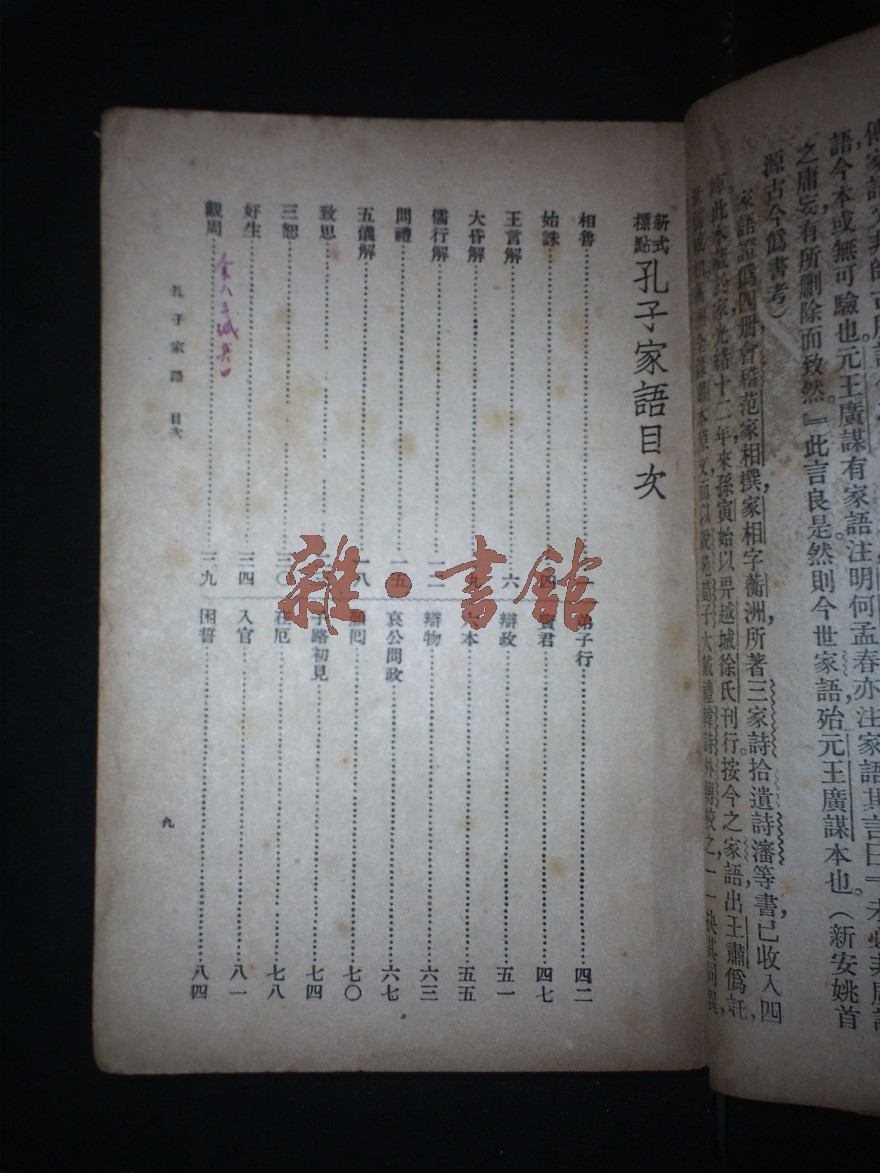 傳家語
語今本或無可驗也。元王廣謀有家語注明何孟春亦注家語其言曰
之庸妄有所刪除而致然』此言良是然則今世家語殆元王廣謀本也。（新安姚首
源古今僞書考）
家語證僞四册會稽范家相撰家相字蘅洲所著三家詩拾遺詩瀋等書已收入四
庫此本藏於家光緒十二年來孫寅始以畀越城徐氏刊行按今之家語出王肅僞託，
新式
標點
孔子家語目次
相魯 一
始誅 四
王言解 六
大昏解 九
儒行解 一二
問禮 一五
五儀解 一八
致思
三恕 三〇
好生 三四
觀周 三九
弟子行 四二
君 四七
辯政 五一
本 五五
辯物 六三
哀公問政 六七
回 七〇
子路初見 七四
在厄 七八
入官 八一
困誓 八四
孔子家語 目次
九
雜·書館